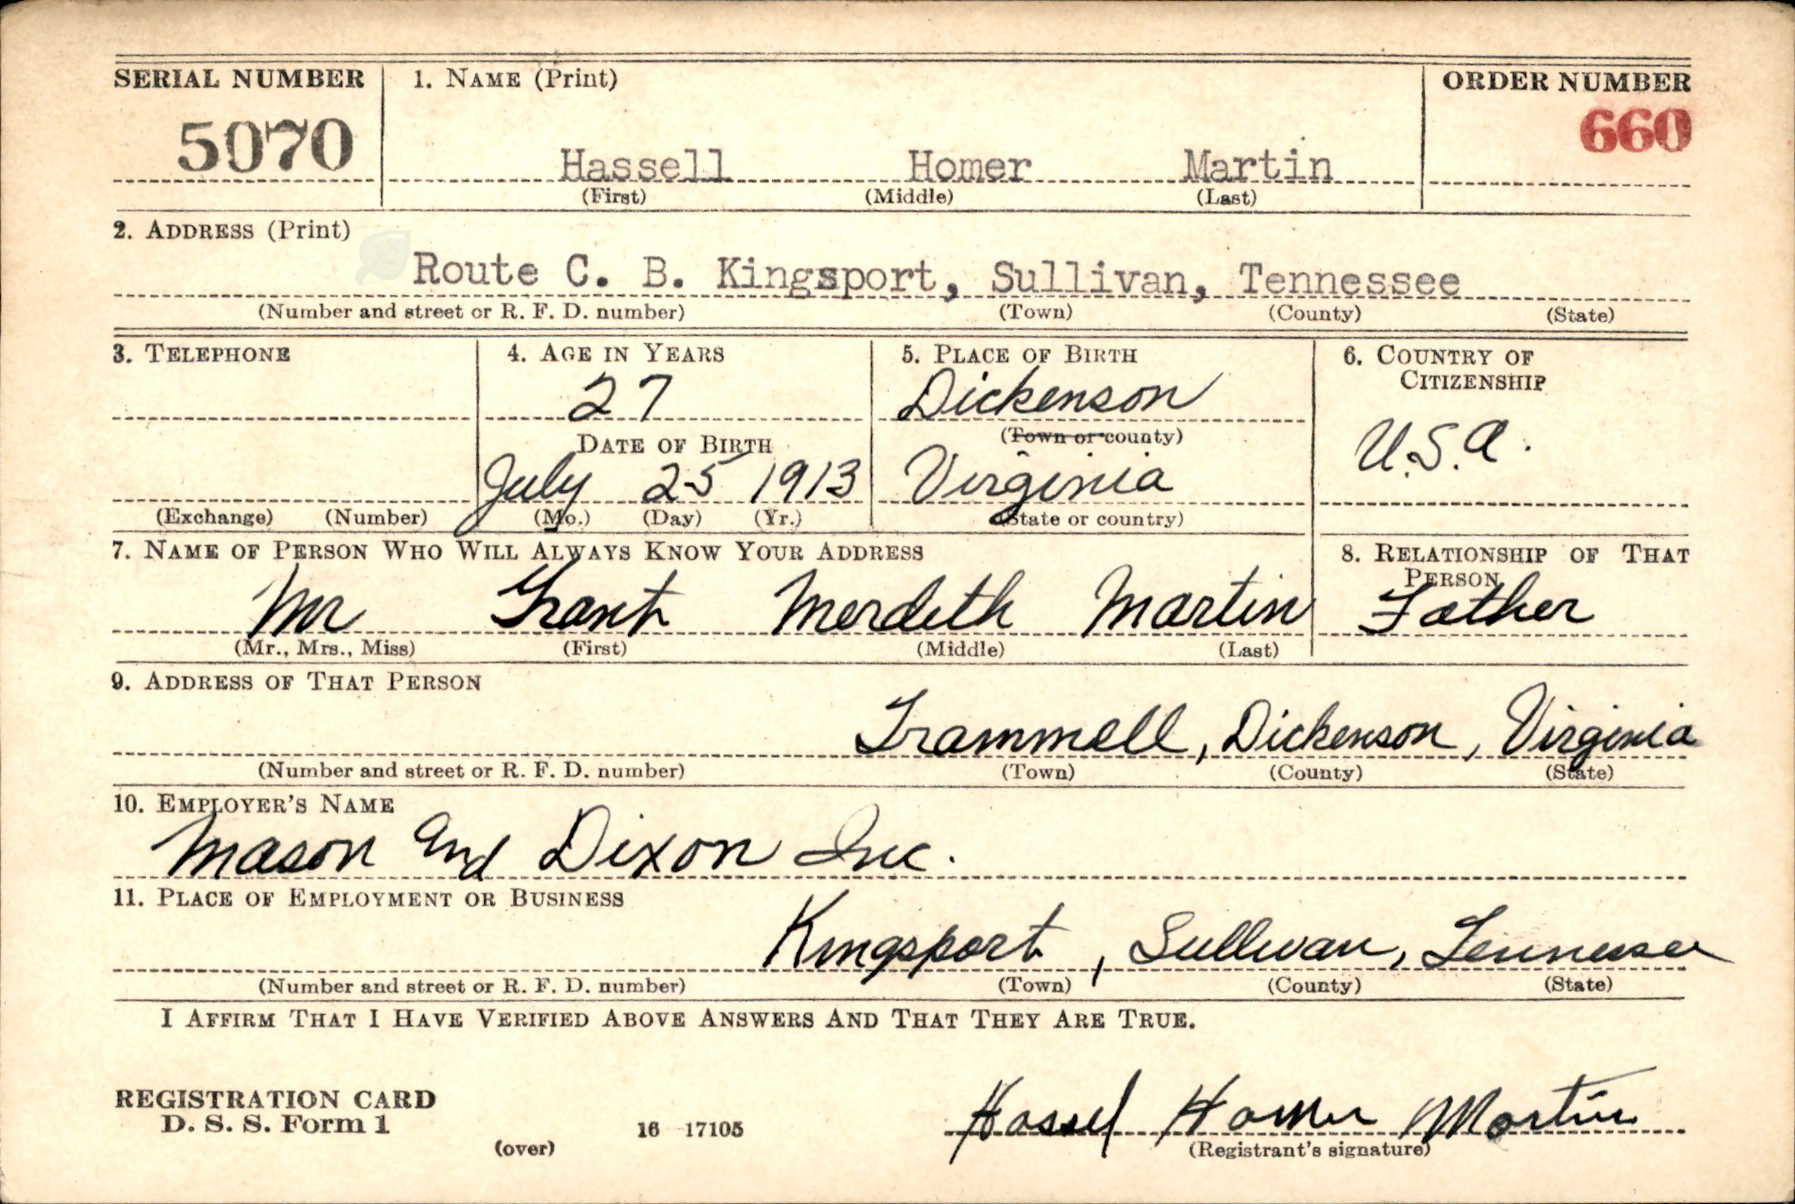 SERIAL NUMBER 1. NAME (Print) ORDER NUMBER
5070 Hassell Homer Martin 660
(First) (Middle) (Last)
2. ADDRESS (Print)
Route C. B. Kingsport, Sullivan, Tennessee
(Number and street or R. F. D. number) (Town) (County) (State)
3. TELEPHONE 4. AGE IN YEARS 5. PLACE OF BIRTH 6. COUNTRY OF CITIZENSHIP
27 Dickenson
DATE OF BIRTH (Town or county) U.S.A.
July 25 1913 Virginia
(Exchange) (Number) (Mo.) (Day) (Yr.) (State or country)
7. NAME OF PERSON WHO WILL ALWAYS KNOW YOUR ADDRESS 8. RELATIONSHIP OF THAT PERSON
Mr Grant Merdeth Martin Father
(Mr., Mrs., Miss) (First) (Middle) (Last)
9. ADDRESS OF THAT PERSON
Trammell, Dickenson, Virginia
(Number and street or R. F. D. number) (Town) (County) (State)
10. EMPLOYER'S NAME
Mason And Dixon Inc.
11. PLACE OF EMPLOYMENT OR BUSINESS
Kingsport, Sullivan, Tennessee
(Number and street or R. F. D. number) (Town) (County) (State)
I AFFIRM THAT I HAVE VERIFIED ABOVE ANSWERS AND THAT THEY ARE TRUE.
REGISTRATION CARD
D. S. S. Form 1 Hassel Homer Martin
(over) 16 17105 (Registrant's signature)